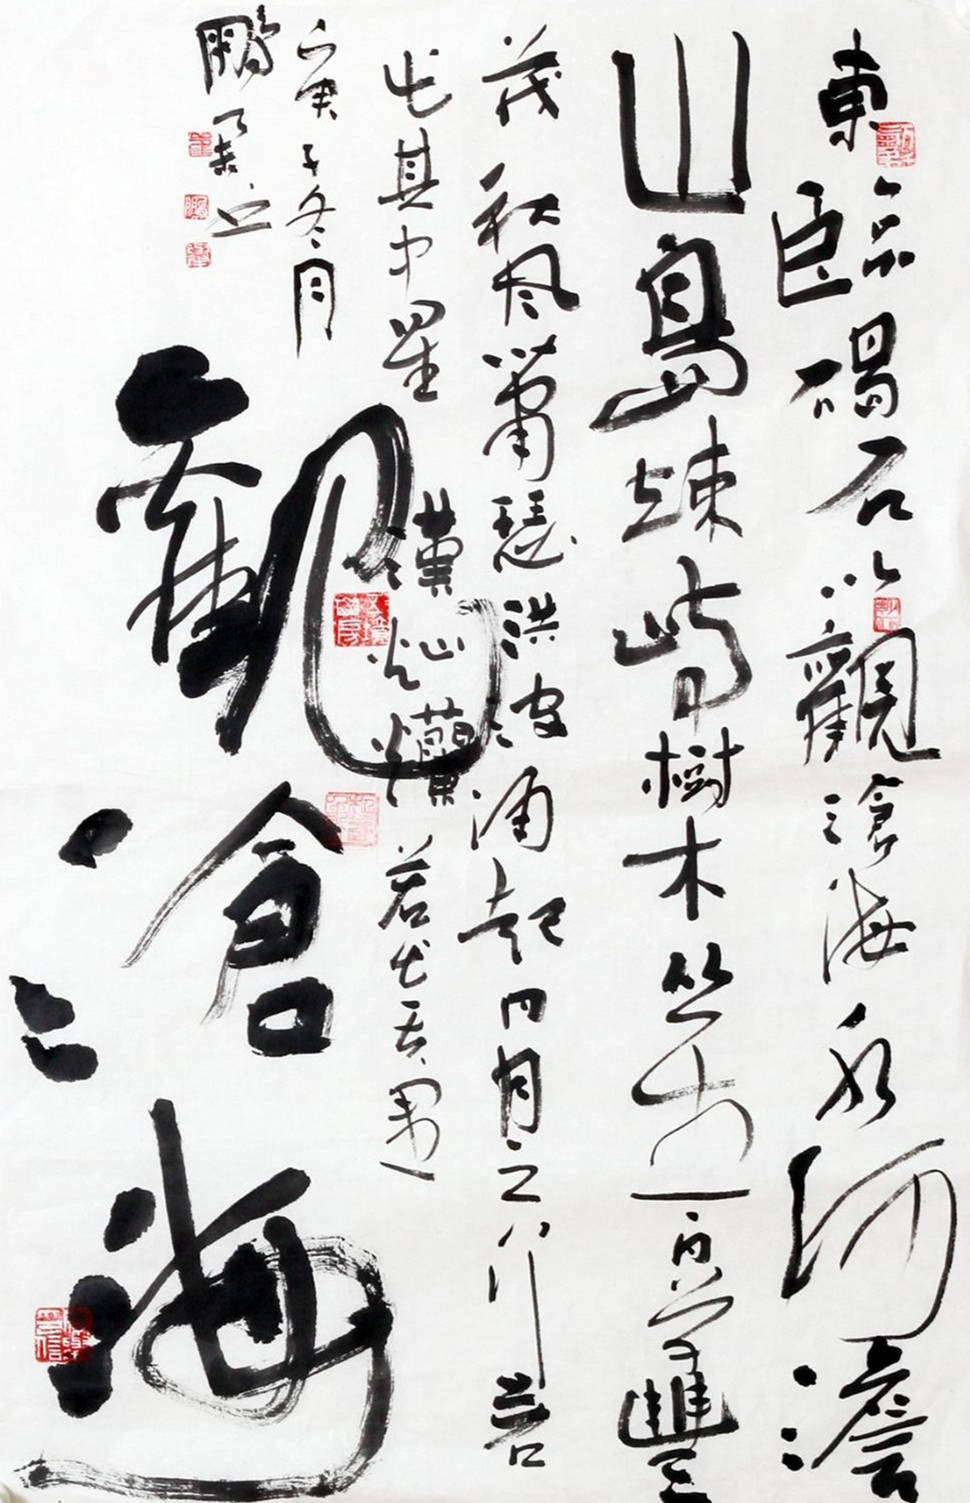 東臨碣石以觀滄海水何澹
山島竦峙樹木叢生百草豐
茂秋風蕭瑟洪波涌起日月之行若
出其中星漢燦爛若出其裏
庚子冬月
鵬
觀滄海